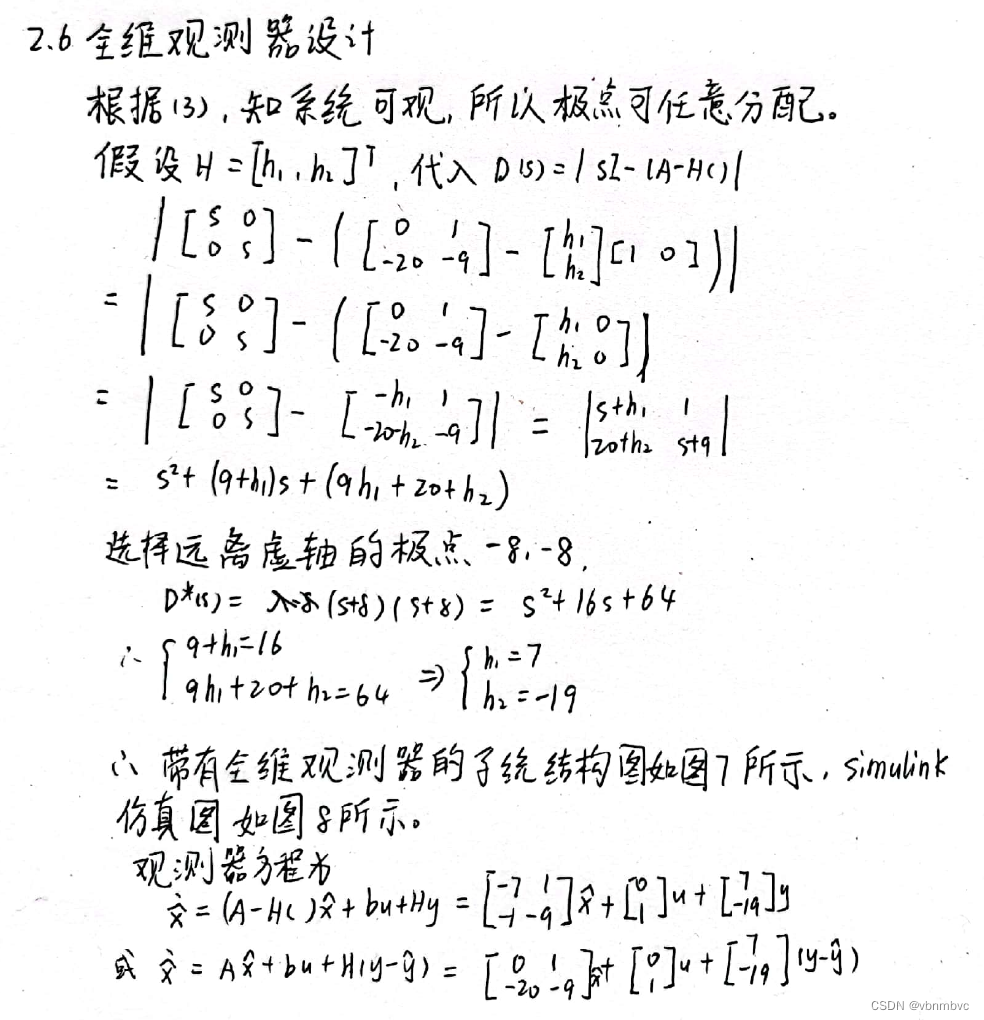 2.6 全维观测器设计
根据(3),知系统可观,所以极点可任意分配。
假设 H = [h₁, h₂]ᵀ, 代入 D(s) = |sI-(A-HC)|
| [s 0; 0 s] - ( [0 1; -20 -9] - [h₁; h₂] [1 0] ) |
= | [s 0; 0 s] - ( [0 1; -20 -9] - [h₁ 0; h₂ 0] ) |
= | [s 0; 0 s] - [-h₁ 1; -20-h₂ -9] | = |s+h₁ 1; 20+h₂ s+9|
= s²+ (9+h₁)s + (9h₁+20+h₂)
选择远离虚轴的极点 -8, -8,
D*(s) = (s+8)(s+8) = s²+16s+64
∴ { 9+h₁=16; 9h₁+20+h₂=64 ⇒ { h₁=7; h₂=-19
∴ 带有全维观测器的子统结构图如图7所示, simulink
仿真图如图8所示。
观测器方程为
ẋ̂ = (A-HC)x̂+bu+Hy = [-7 1; -1 -9]x̂ + [0; 1]u + [7; -19]y
或 ẋ̂ = Ax̂+bu+H(y-ŷ) = [0 1; -20 -9]x̂+ [0; 1]u + [7; -19](y-ŷ)
CSDN @vbnmbvc